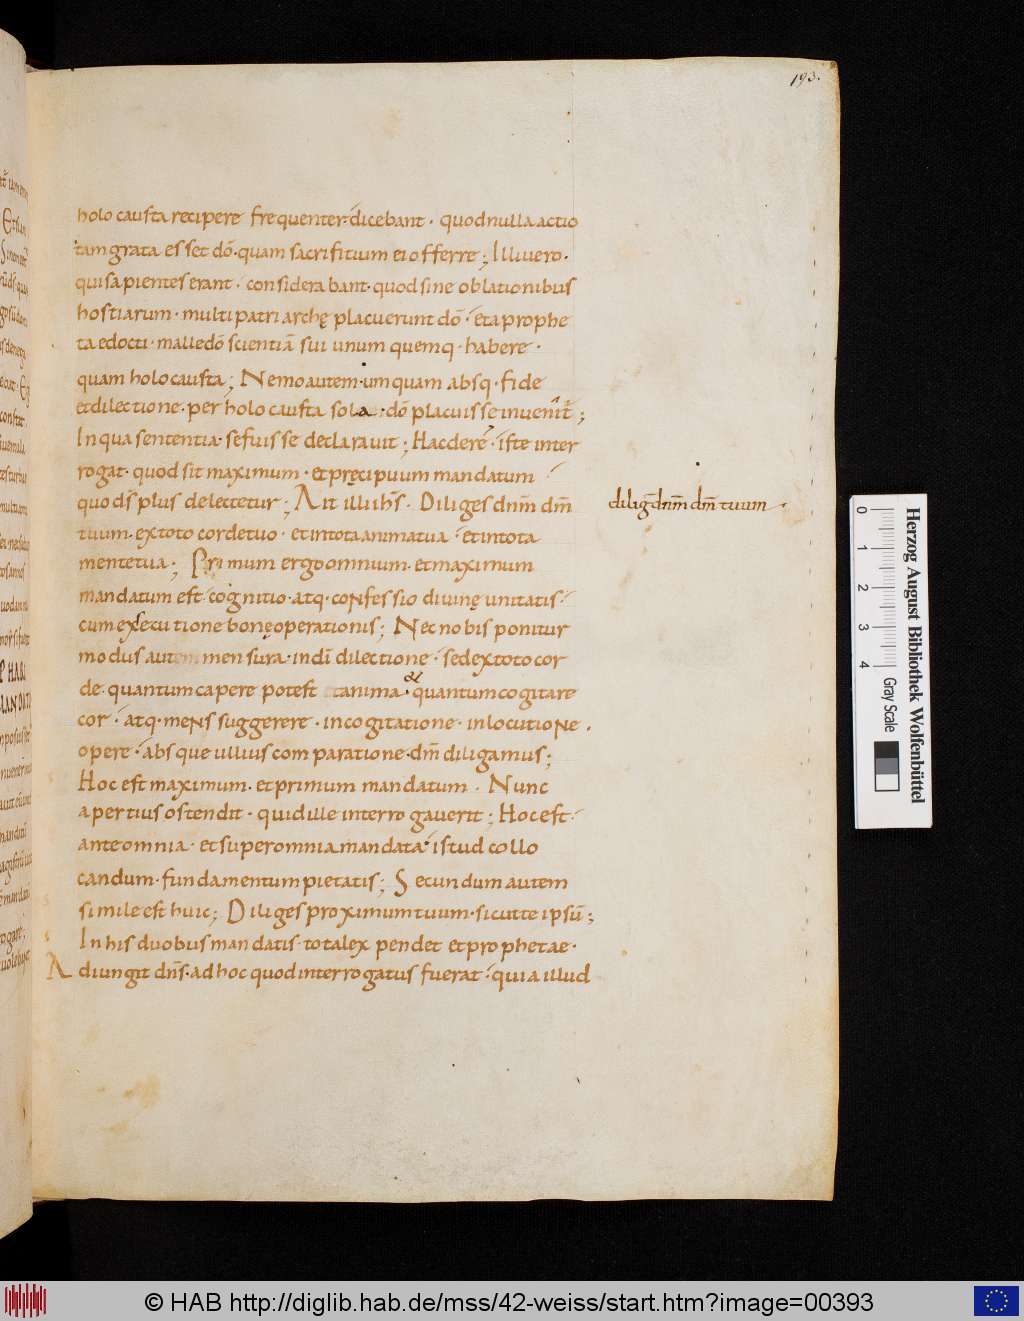 193.
holocausta recipere frequenter dicebant· quod nulla actio
tam grata esset dō· quam sacrifitium ei offerre; Illi vero·
qui sapientes erant· considerabant· quod sine oblationibus
hostiarum· multi patriarchę placuerunt dō· et a prophe
ta edocti· malle dō scientiā sui unum quemq· habere·
quam holocausta; Nemo autem· umquam absq· fide
et dilectione· per holocausta sola· dō placuisse invenit;
In qua sententia· se fuisse declaravit; Hac de re· iste inter
rogat· quod sit maximum· et pręcipuum mandatum
quo ds̄ plus delectetur; Ait illi ih̄s· Diliges dnm̄ dm̄
tuum· ex toto corde tuo· et in tota anima tua· et in tota
mente tua; Primum ergo omnium· et maximum
mandatum est· cognitio· atq· confessio divinę unitatis·
cum exsecutione bonę operationis; Nec nobis ponitur
modus aut mensura· in dī dilectione· sed ex toto cor
de· quantum capere potest anima· & quantum cogitare
cor· atq· mens suggerere· in cogitatione· in locutione·
opere· absque ullius comparatione· dm̄ diligamus;
Hoc est maximum· et primum mandatum· Nunc
apertius ostendit· quid ille interrogaverit; Hoc est·
ante omnia· et super omnia mandata· istud collo
candum· fundamentum pietatis; Secundum autem
simile est huic; Diliges proximum tuum· sicut te ipsū;
In his duobus mandatis· tota lex pendet et prophetae·
Adiungit dn̄s· ad hoc quod interrogatus fuerat· quia illud
dilig dnm̄ dm̄ tuum
Herzog August Bibliothek Wolfenbüttel
0 1 2 3 4
Gray Scale
© HAB http://diglib.hab.de/mss/42-weiss/start.htm?image=00393